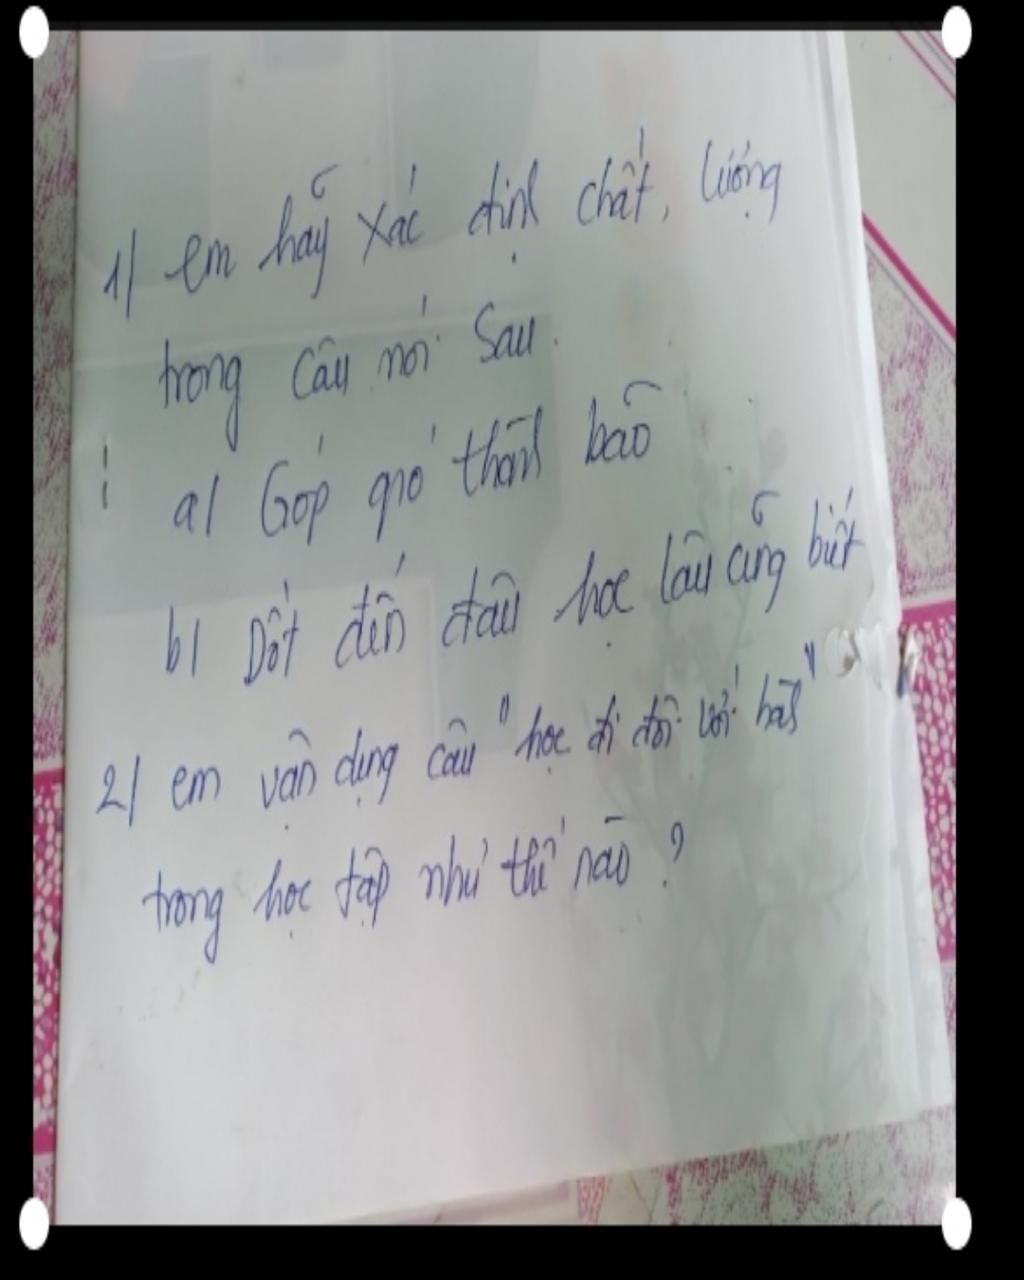 1/ em hãy xác định chất, lượng
trong câu nói sau.
a/ Góp gió thành bão
b/ Dốt đến đâu học lâu cũng biết
2/ em vận dụng câu "học đi đôi với hành"
trong học tập như thế nào?